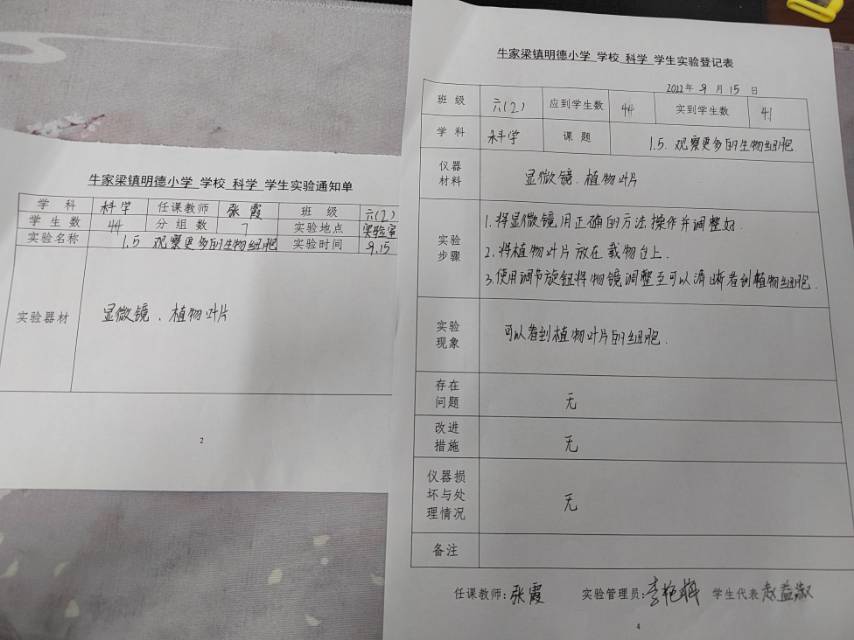 牛家梁镇明德小学 学校 科学 学生实验通知单
学 科 科学 任课教师 张霞 班 级 六(2)
学 生 数 44 分 组 数 7 实验地点 实验室
实验名称 1.5 观察更多的生物细胞 实验时间 9.15
实验器材 显微镜、植物叶片
2
牛家梁镇明德小学 学校 科学 学生实验登记表
2022年 9 月 15 日
班 级 六(2) 应到学生数 44 实到学生数 41
学 科 科学 课 题 1.5. 观察更多的生物细胞
仪器
材料
显微镜、植物叶片
实验
步骤
1.将显微镜用正确的方法操作并调整好.
2.将植物叶片放在载物台上.
3.使用调节旋钮将物镜调整至可以清晰看到植物细胞.
实验
现象
可以看到植物叶片的细胞.
存在
问题
无
改进
措施
无
仪器损
坏与处
理情况
无
备注
任课教师:张霞 实验管理员: 学生代表
4